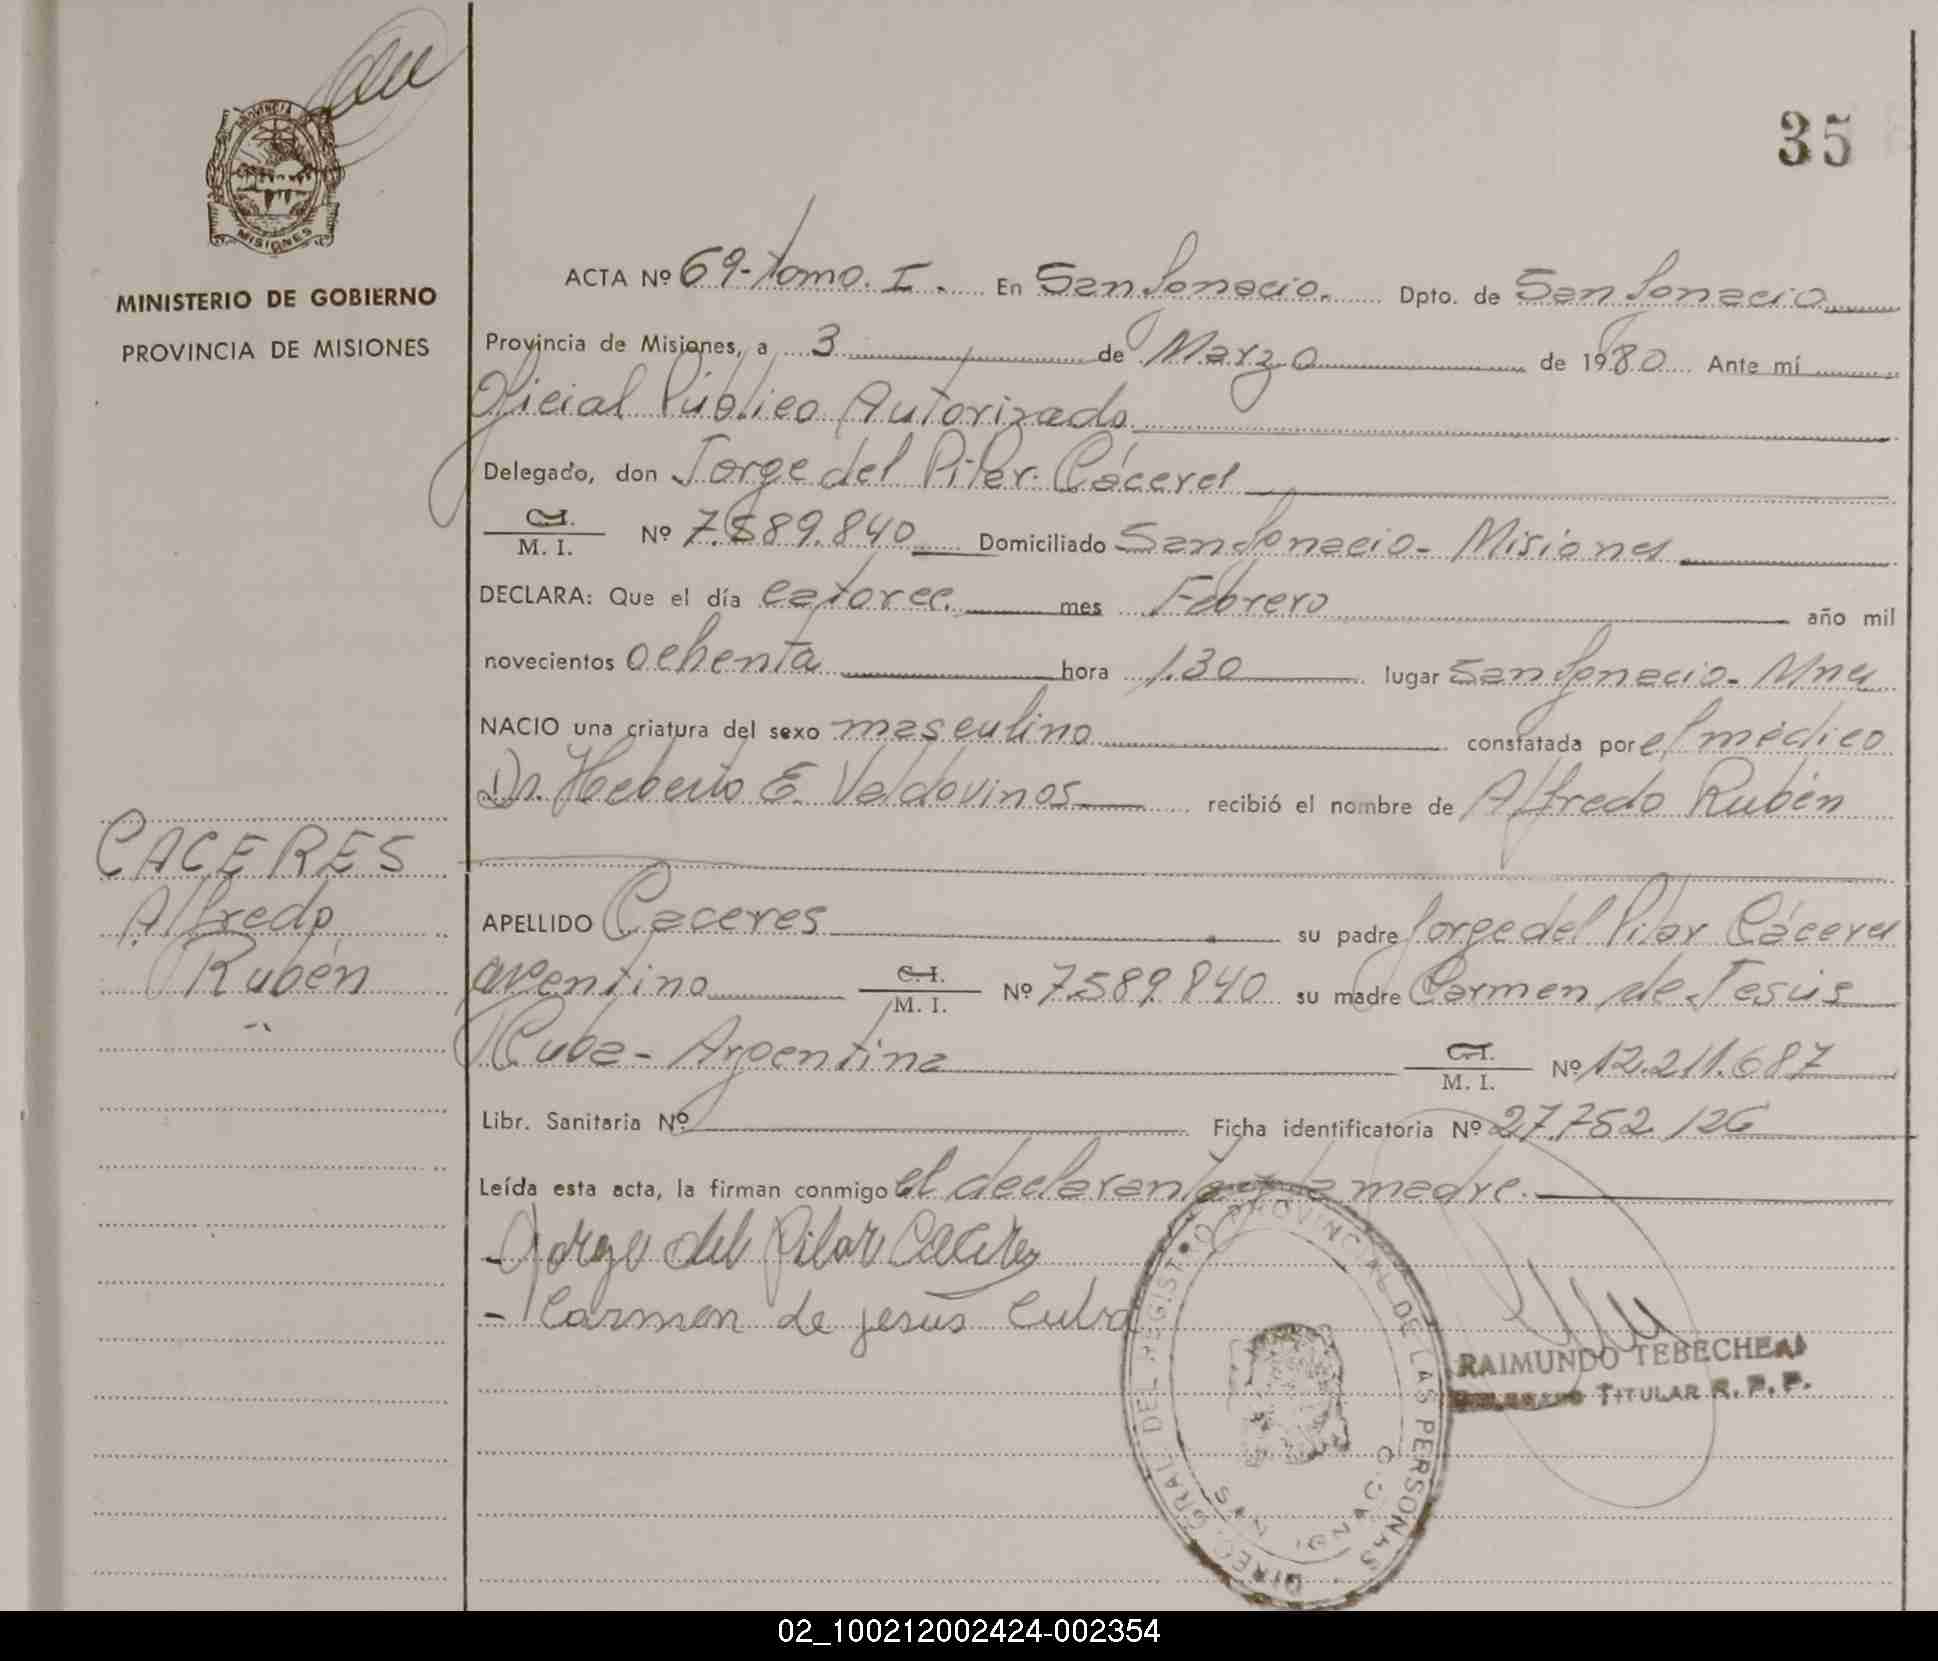 PROVINCIA
MISIONES
MINISTERIO DE GOBIERNO
PROVINCIA DE MISIONES
35
ACTA Nº 69-tomo. I. En San Ignacio. Dpto. de San Ignacio
Provincia de Misiones, a 3 de Marzo de 1980 Ante mí
Oficial Público Autorizado
Delegado, don Jorge del Pilar Cáceres
C.I.
M. I. Nº 7.589.840 Domiciliado San Ignacio - Misiones
DECLARA: Que el día catorce mes Febrero año mil
novecientos ochenta hora 1.30 lugar San Ignacio - Mnes
NACIO una criatura del sexo masculino constatada por el médico
Dr. Heberto E. Valdovinos recibió el nombre de Alfredo Rubén
CACERES
Alfredo
Rubén
APELLIDO Caceres su padre Jorge del Pilar Cáceres
argentino C.I.
M. I. Nº 7.589.840 su madre Carmen de Jesús
Cuba - Argentina C.I.
M. I. Nº 12.211.687
Libr. Sanitaria Nº Ficha identificatoria Nº 27.752.126
Leída esta acta, la firman conmigo el declarante y la madre.
- Jorge del Pilar Caceres
- Carmen de jesús Cuba
DIREC. GRAL. DEL REGISTRO PROVINCIAL DE LAS PERSONAS
SAN IGNACIO
RAIMUNDO TEBECHERI
DELEGADO TITULAR R. P. P.
02_100212002424-002354